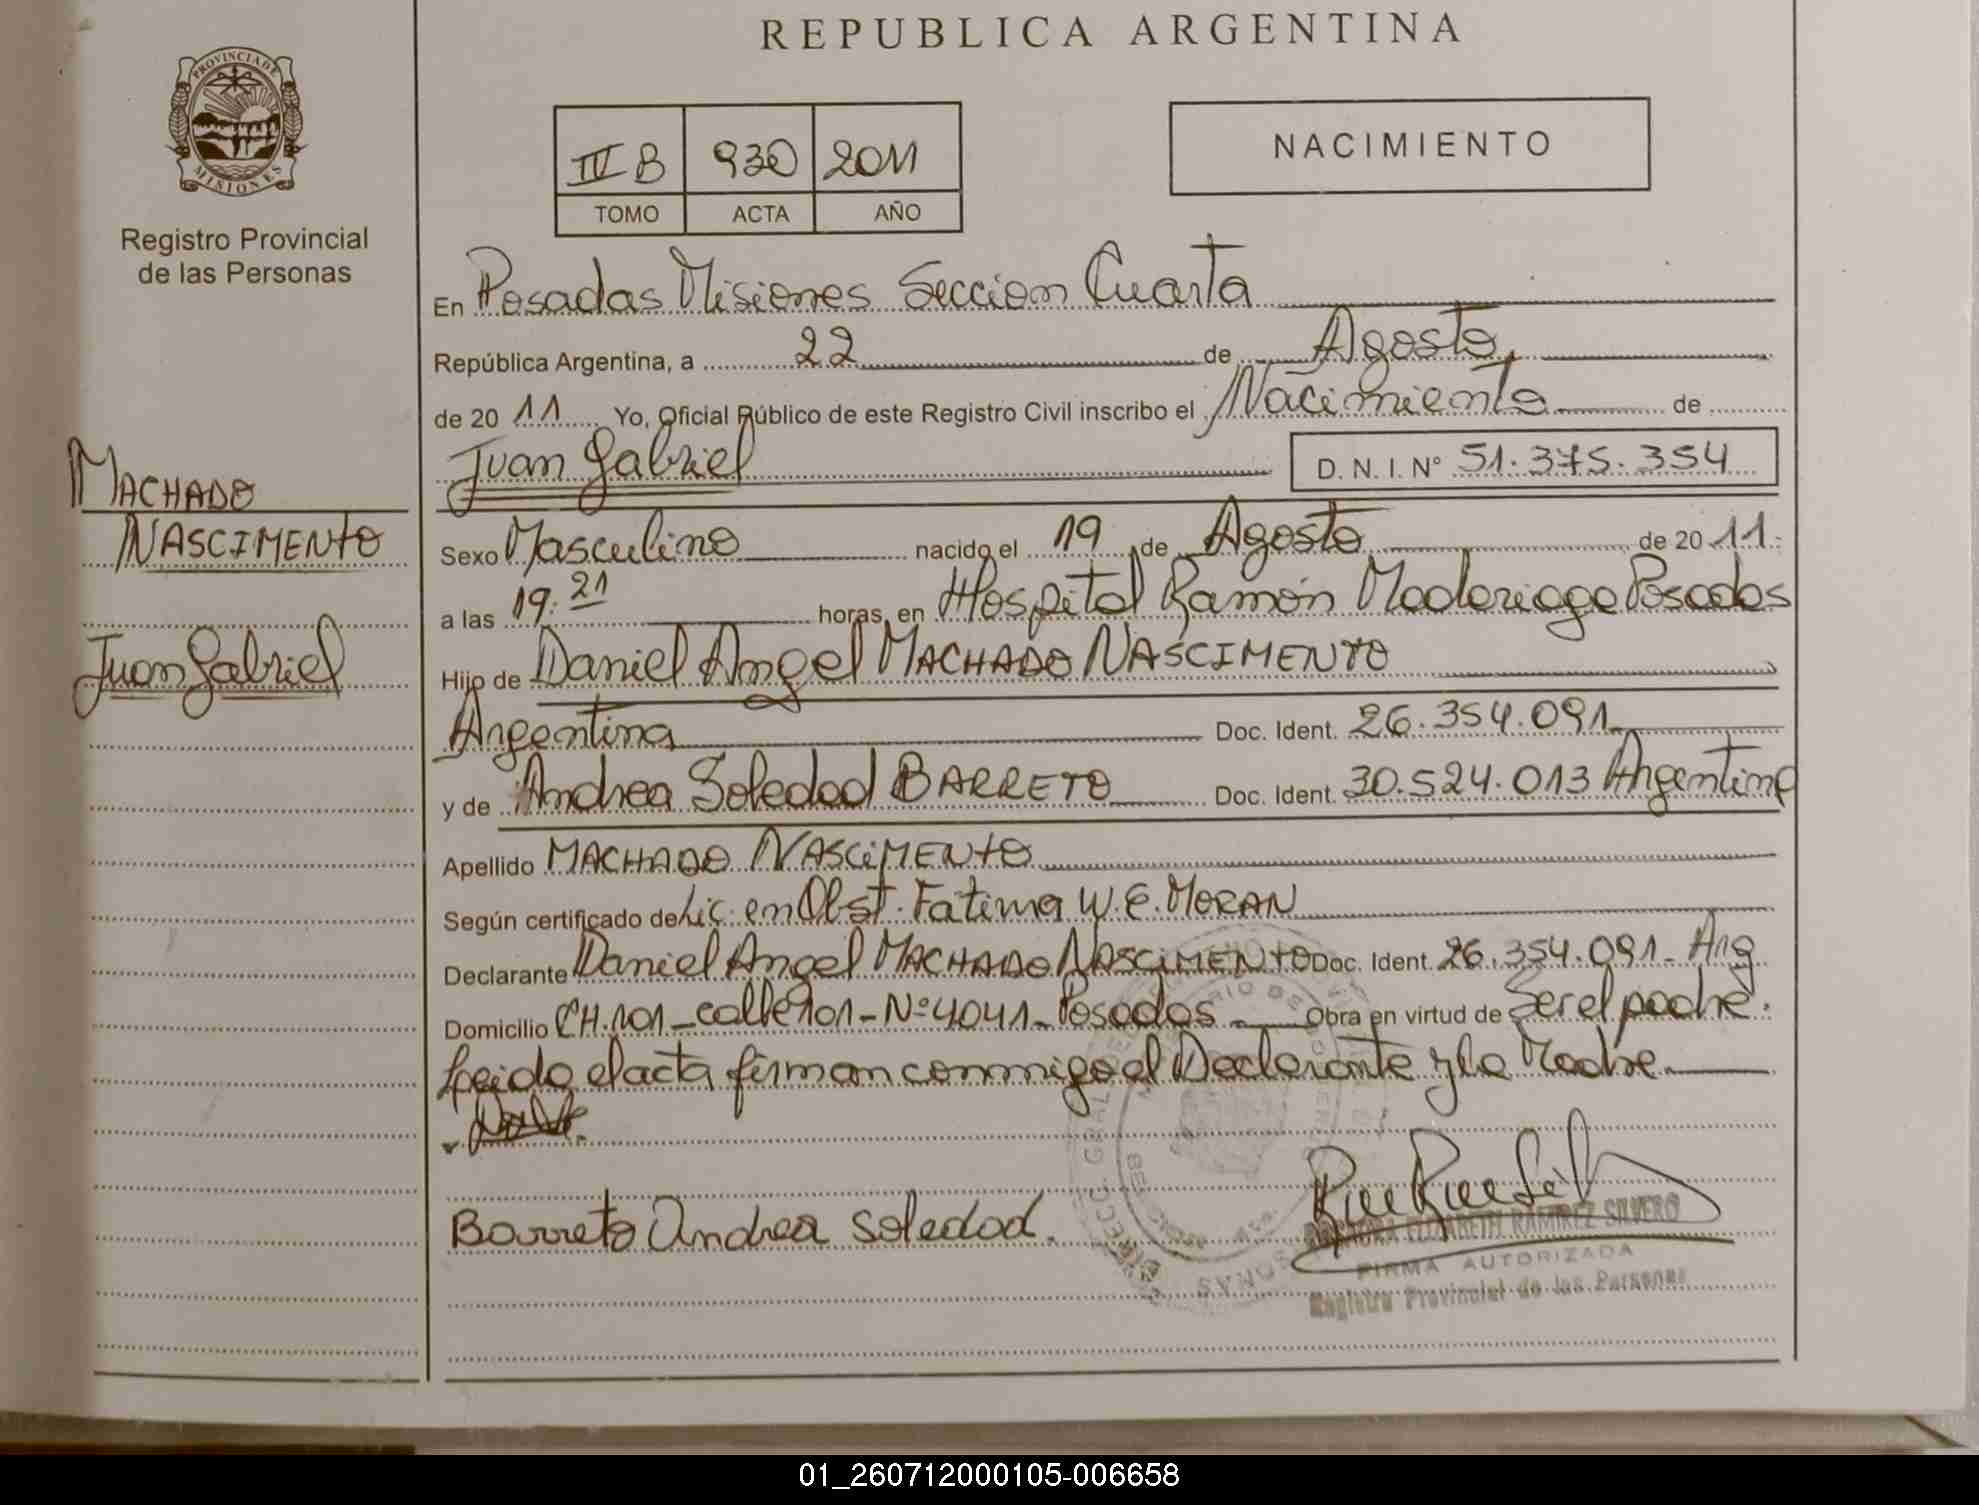 REPUBLICA ARGENTINA
PROVINCIA DE
MISIONES
Registro Provincial
de las Personas
IV B 930 2011
TOMO ACTA AÑO
NACIMIENTO
En Posadas Misiones Seccion Cuarta
República Argentina, a 22 de Agosto
de 20 11 Yo, Oficial Público de este Registro Civil inscribo el Nacimiento de
Juan Gabriel D. N. I. N° 51.375.354
MACHADO
NASCIMENTO
Juan Gabriel
Sexo Masculino nacido el 19 de Agosto de 20 11
a las 19:21 horas, en Hospital Ramón Madariaga Posadas
Hijo de Daniel Angel MACHADO NASCIMENTO
Argentina Doc. Ident. 26.354.091
y de Andrea Soledad BARRETO Doc. Ident. 30.524.013 Argentina
Apellido MACHADO NASCIMENTO
Según certificado de Lic. en Obst. Fatima W. E. MORAN
Declarante Daniel Angel MACHADO NASCIMENTO Doc. Ident. 26.354.091 - Arg
Domicilio CH.101 - calle 101 - N° 4041 - Posadas Obra en virtud de Ser el padre.
Leido el acta firman conmigo el Declarante y la Madre
Barreto Andrea Soledad.
ELIZABETH RAMIREZ SILVERO
FIRMA AUTORIZADA
Registro Provincial de las Personas
01_260712000105-006658